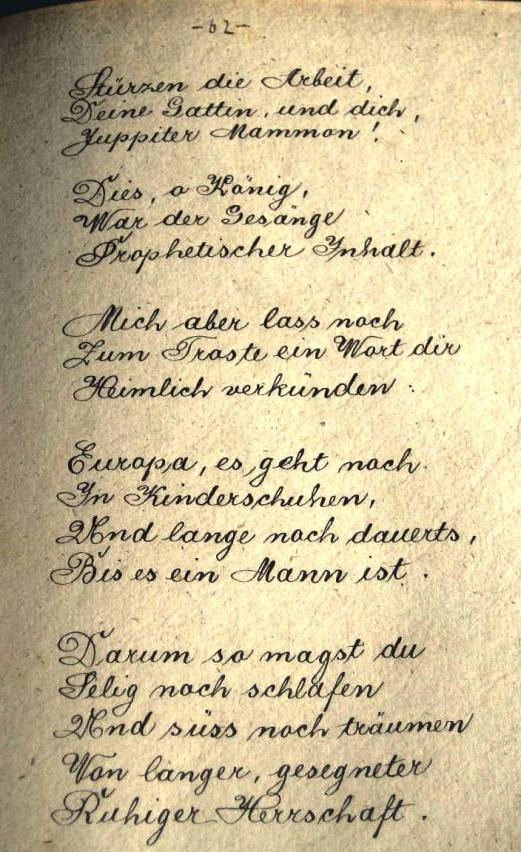 -62-
Stürzen die Arbeit,
Deine Gattin, und dich,
Juppiter Mammon!
Dies, o König,
War der Gesänge
Prophetischer Inhalt.
Mich aber lass noch
Zum Troste ein Wort dir
Heimlich verkünden:
Europa, es geht noch
In Kinderschuhen,
Und lange noch dauerts,
Bis es ein Mann ist.
Darum so magst du
Selig noch schlafen
Und süss noch träumen
Von langer, gesegneter
Ruhiger Herrschaft.